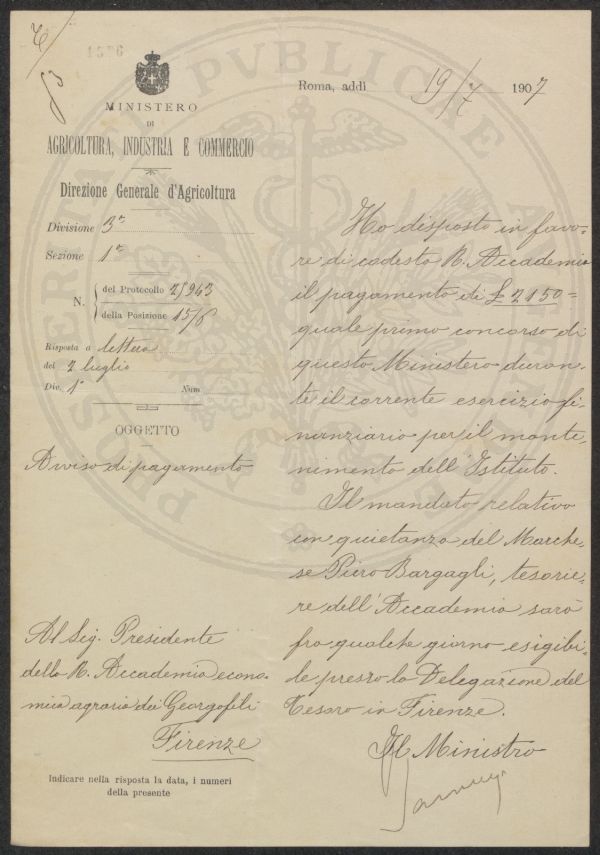 1526
MINISTERO
DI
AGRICOLTURA, INDUSTRIA E COMMERCIO
Direzione Generale d'Agricoltura
Divisione 3ª
Sezione 1ª
N. del Protocollo 25963
della Posizione 15/6
Risposta a lettera
del 2 luglio
Div. 1ª Num
OGGETTO
Avviso di pagamento
Al Sig. Presidente
della R. Accademia econo-
mico agraria dei Georgofili
Firenze
Indicare nella risposta la data, i numeri
della presente
Roma, addì 19/7 1907
Ho disposto in favo-
re di codesta R. Accademia
il pagamento di £ 2150=
quale primo concorso di
questo Ministero duran-
te il corrente esercizio fi-
nanziario per il mante-
nimento dell'Istituto.
Il mandato relativo
con quietanza del Marche-
se Piero Bargagli, tesorie-
re dell'Accademia sarà
fra qualche giorno esigibi-
le presso la Delegazione del
Tesoro in Firenze.
Il Ministro
PROSPERITATI PVBLICAE